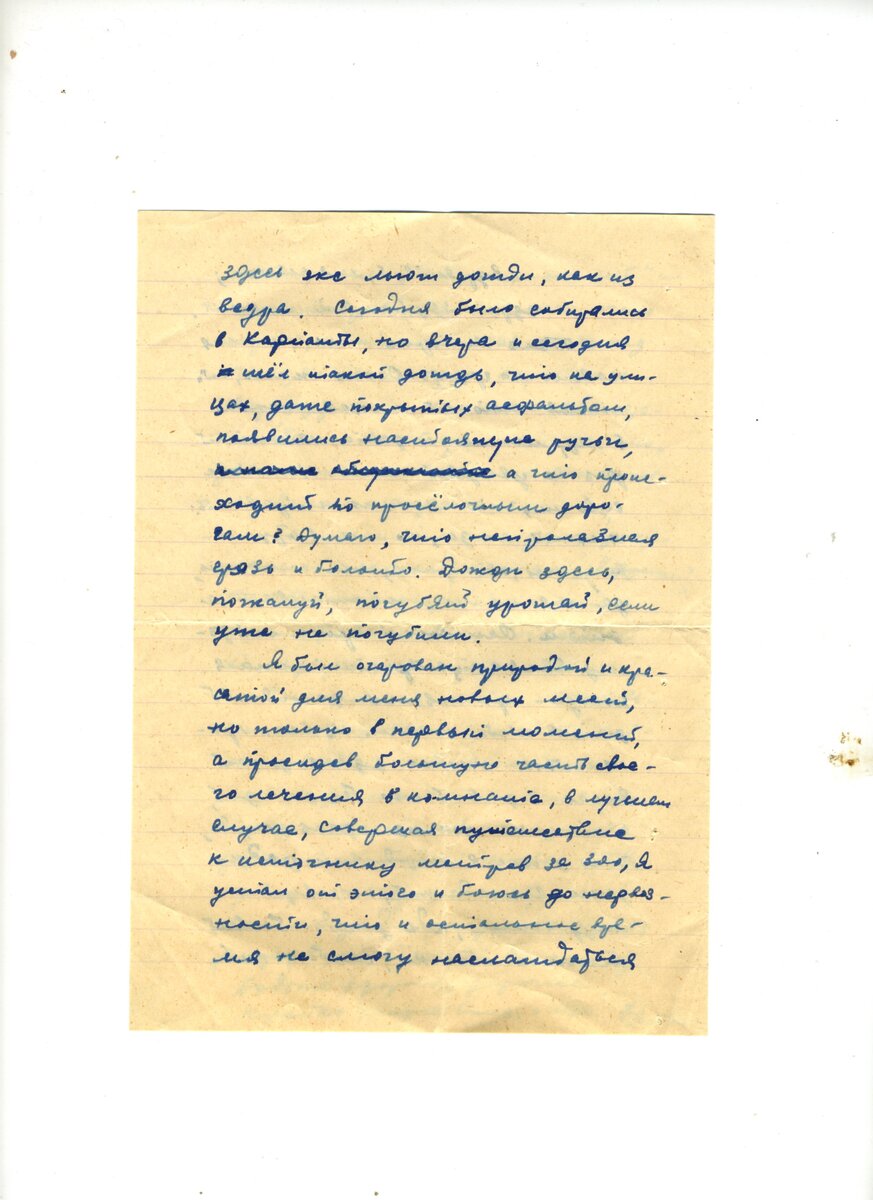 здесь же льют дожди, как из
ведра. Сегодня было собирались
в Карпаты, но вчера и сегодня
шёл такой дождь, что на ули-
цах, даже покрытых асфальтом,
появились настоящие ручьи,
а что проис-
ходит по просёлочным доро-
гам? Думаю, что непролазная
грязь и болото. Дожди здесь,
пожалуй, погубят урожай, если
уже не погубили.
Я был очарован природой и кра-
сотой для меня новых мест,
но только в первый момент,
а просидев большую часть свое-
го лечения в комнате, в лучшем
случае, совершая путешествие
к источнику метров за 300, я
устал от этого и боюсь до нервоз-
ности, что и остальное вре-
мя не смогу наслаждаться